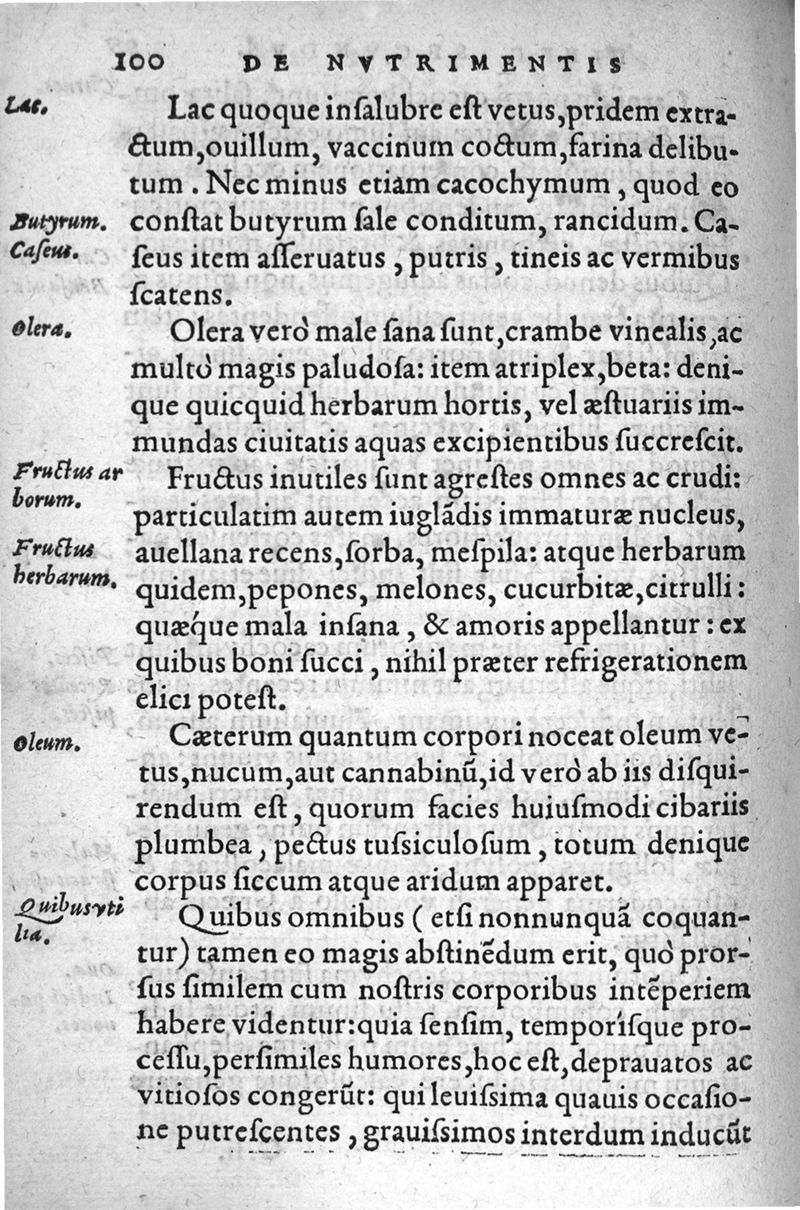 100 DE NVTRIMENTIS
Lac.
Lac quoque inſalubre eſt vetus,pridem extra-
ctum,ouillum, vaccinum coctum,farina delibu-
tum . Nec minus etiam cacochymum , quod eo
Butyrum.
conſtat butyrum ſale conditum, rancidum. Ca-
Caſeus.
ſeus item aſſeruatus , putris , tineis ac vermibus
ſcatens.
Olera.
Olera verò male ſana ſunt,crambe vinealis,ac
multò magis paludoſa: item atriplex,beta: deni-
que quicquid herbarum hortis, vel æſtuariis im-
mundas ciuitatis aquas excipientibus ſuccreſcit.
Fructus ar
borum.
Fructus inutiles ſunt agreſtes omnes ac crudi:
particulatim autem iuglãdis immaturæ nucleus,
Fructus
herbarum.
auellana recens,ſorba, meſpila: atque herbarum
quidem,pepones, melones, cucurbitæ,citrulli :
quæq́ue mala inſana , & amoris appellantur : ex
quibus boni ſucci , nihil præter refrigerationem
elici poteſt.
Oleum.
Cæterum quantum corpori noceat oleum ve-
tus,nucum,aut cannabinũ,id verò ab iis diſqui-
rendum eſt , quorum facies huiuſmodi cibariis
plumbea , pectus tuſsiculoſum , totum denique
corpus ſiccum atque aridum apparet.
Quibus vti
lia.
Quibus omnibus ( etſi nonnunquã coquan-
tur) tamen eo magis abſtinẽdum erit, quò pror-
ſus ſimilem cum noſtris corporibus intẽperiem
habere videntur:quia ſenſim, temporíſque pro-
ceſſu,perſimiles humores,hoc eſt,deprauatos ac
vitioſos congerũt: qui leuiſsima quauis occaſio-
ne putreſcentes , grauiſsimos interdum inducũt